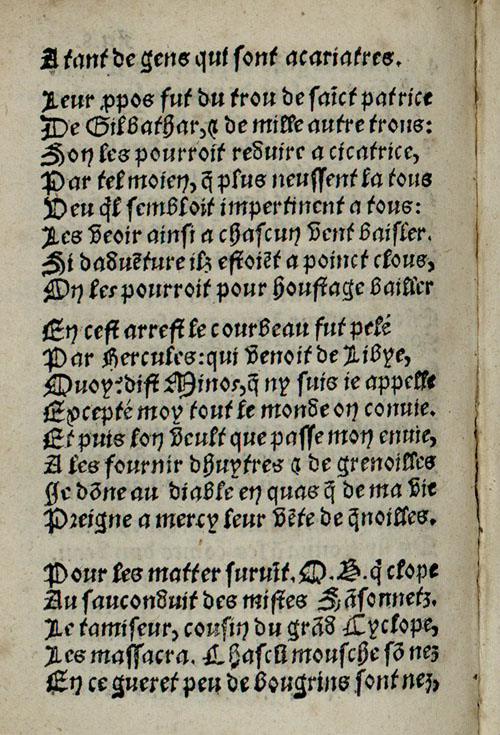 A tant de gens qui sont acariatres.
Leur ꝓpos fut du trou de saīct patrice
De Gilbathar, ⁊ de mille autre trous:
Son les pourroit reduire a cicatrice,
Par tel moien, q̄ plus neussent la tous
Veu ql̄ sembloit impertinent a tous:
Les veoir ainsi a chascun vent baisler.
Si daduēture ilz estoiēt a poinct clous,
On les pourroit pour houstage bailler
En cest arrest le courbeau fut pelé
Par Hercules: qui venoit de Libye,
Quoy? dist Minos, q̄ ny suis ie appelle
Excepté moy tout le monde on conuie.
Et puis lon veult que passe mon enuie,
A les fournir dhuytres ⁊ de grenoilles
Je dōne au diable en quas q̄ de ma vie
Preigne a mercy leur vēte de q̄noilles.
Pour les matter suruīt. Q. B. q̄ clope
Au sauconduit des mistes Sāsonnetz.
Le tamiseur, cousin du grād Cyclope,
Les massacra. Chascū mousche sō nez
En ce gueret peu de bougrins sont nez,